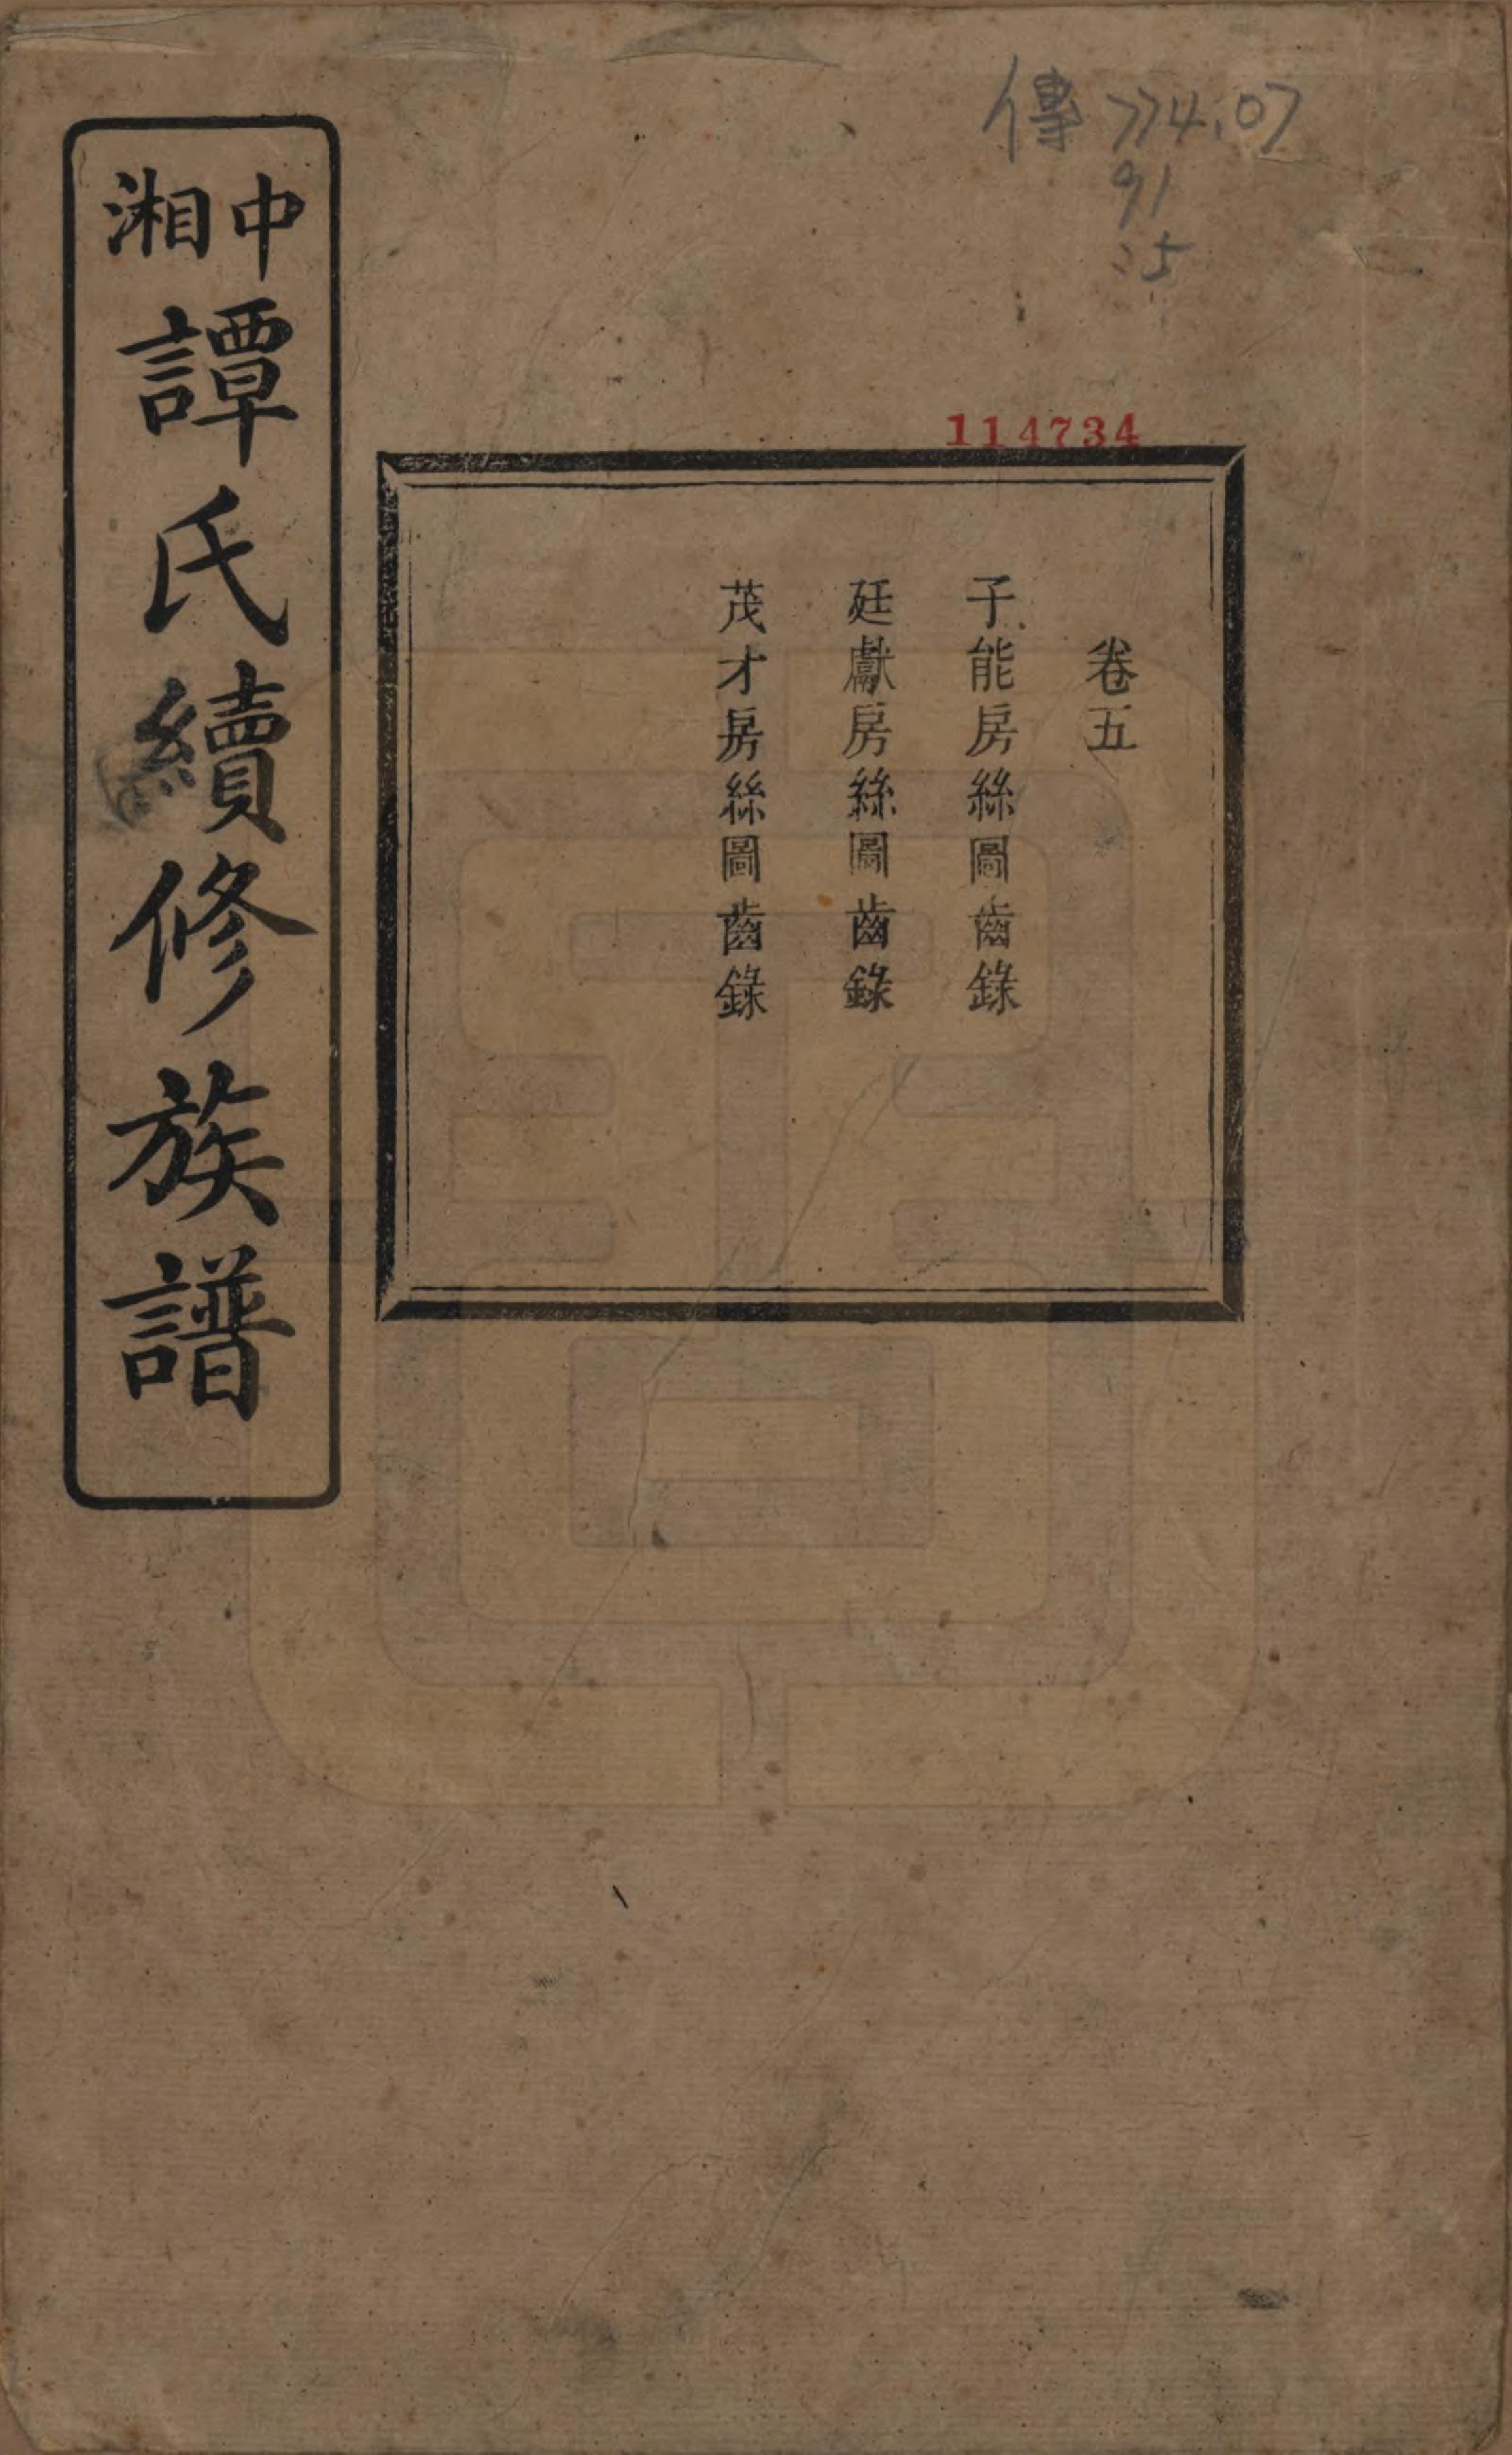 傳 774.07
91
:5
114734
卷五
子能房絲圖齒錄
廷獻房絲圖齒錄
茂才房絲圖齒錄
中湘譚氏續修族譜